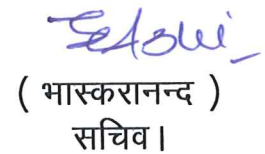 ( भास्करानन्द )
सचिव।